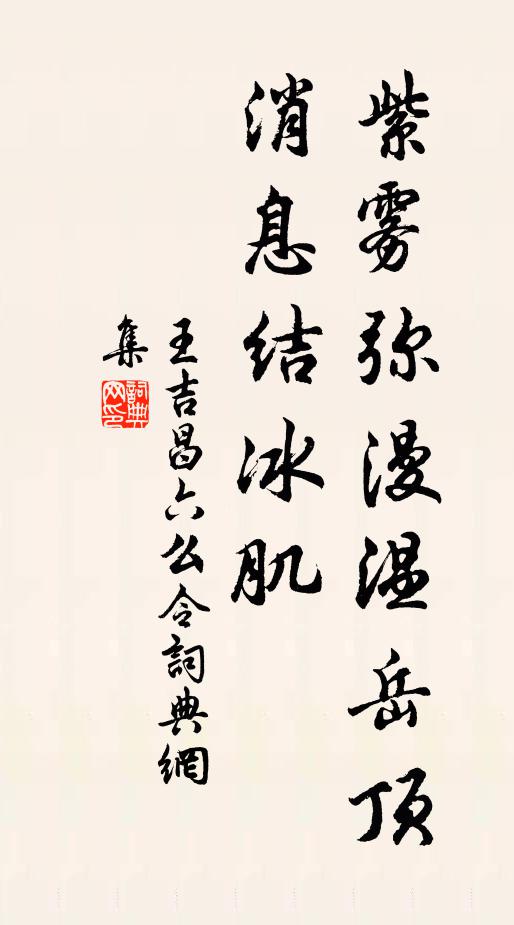 紫雾弥漫温岳顶
消息结冰肌
王吉昌六么令詞典網
集
詞典网印